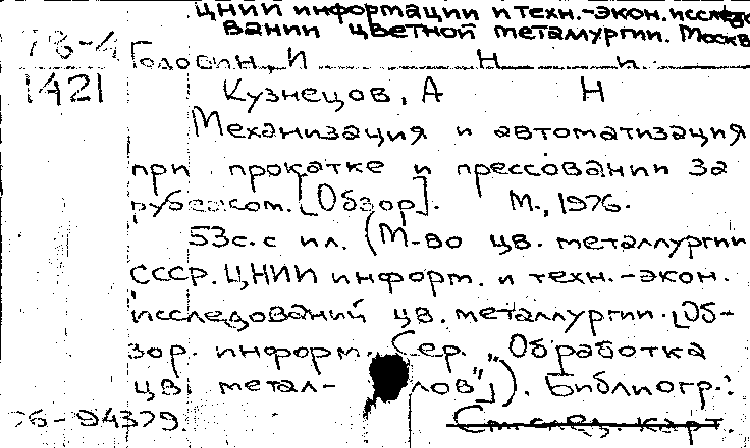 ЦНИИ информации и техн.-экон. исследо
вании цветной металургии. Москва
78-4
1421
Головин, И Н
Кузнецов, А Н
Механизация и автоматизация
при прокатке и прессовании за
рубежом. [Обзор]. М., 1976.
53с. с ил. (М-во цв. металлургии
СССР. ЦНИИ информ. и техн.-экон.
исследований цв. металлургии. [Об-
зор. информ. Сер. „Обработка
цв. метал- лов"]). Библиогр.:
76-94379.
См. след. карт.